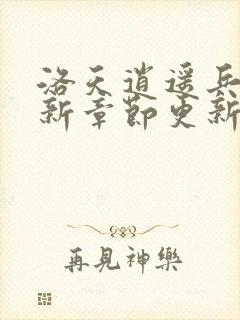 洛天逍遥兵
新章節更新
再見神樂